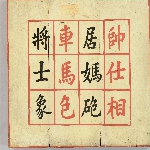 帥仕相
居媽砲
車馬色
將士象